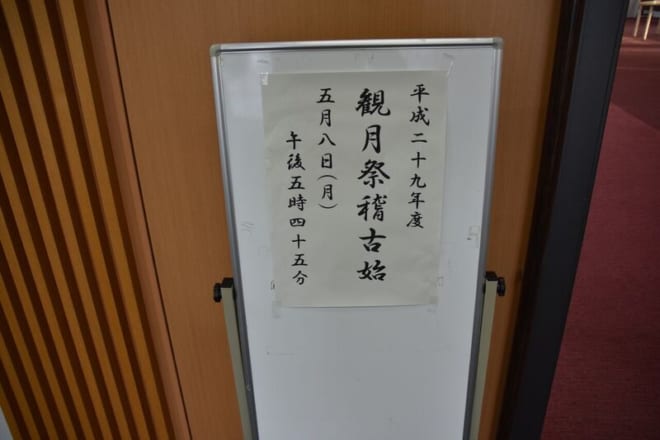 平成二十九年度
観月祭稽古始
五月八日(月)
午後五時四十五分